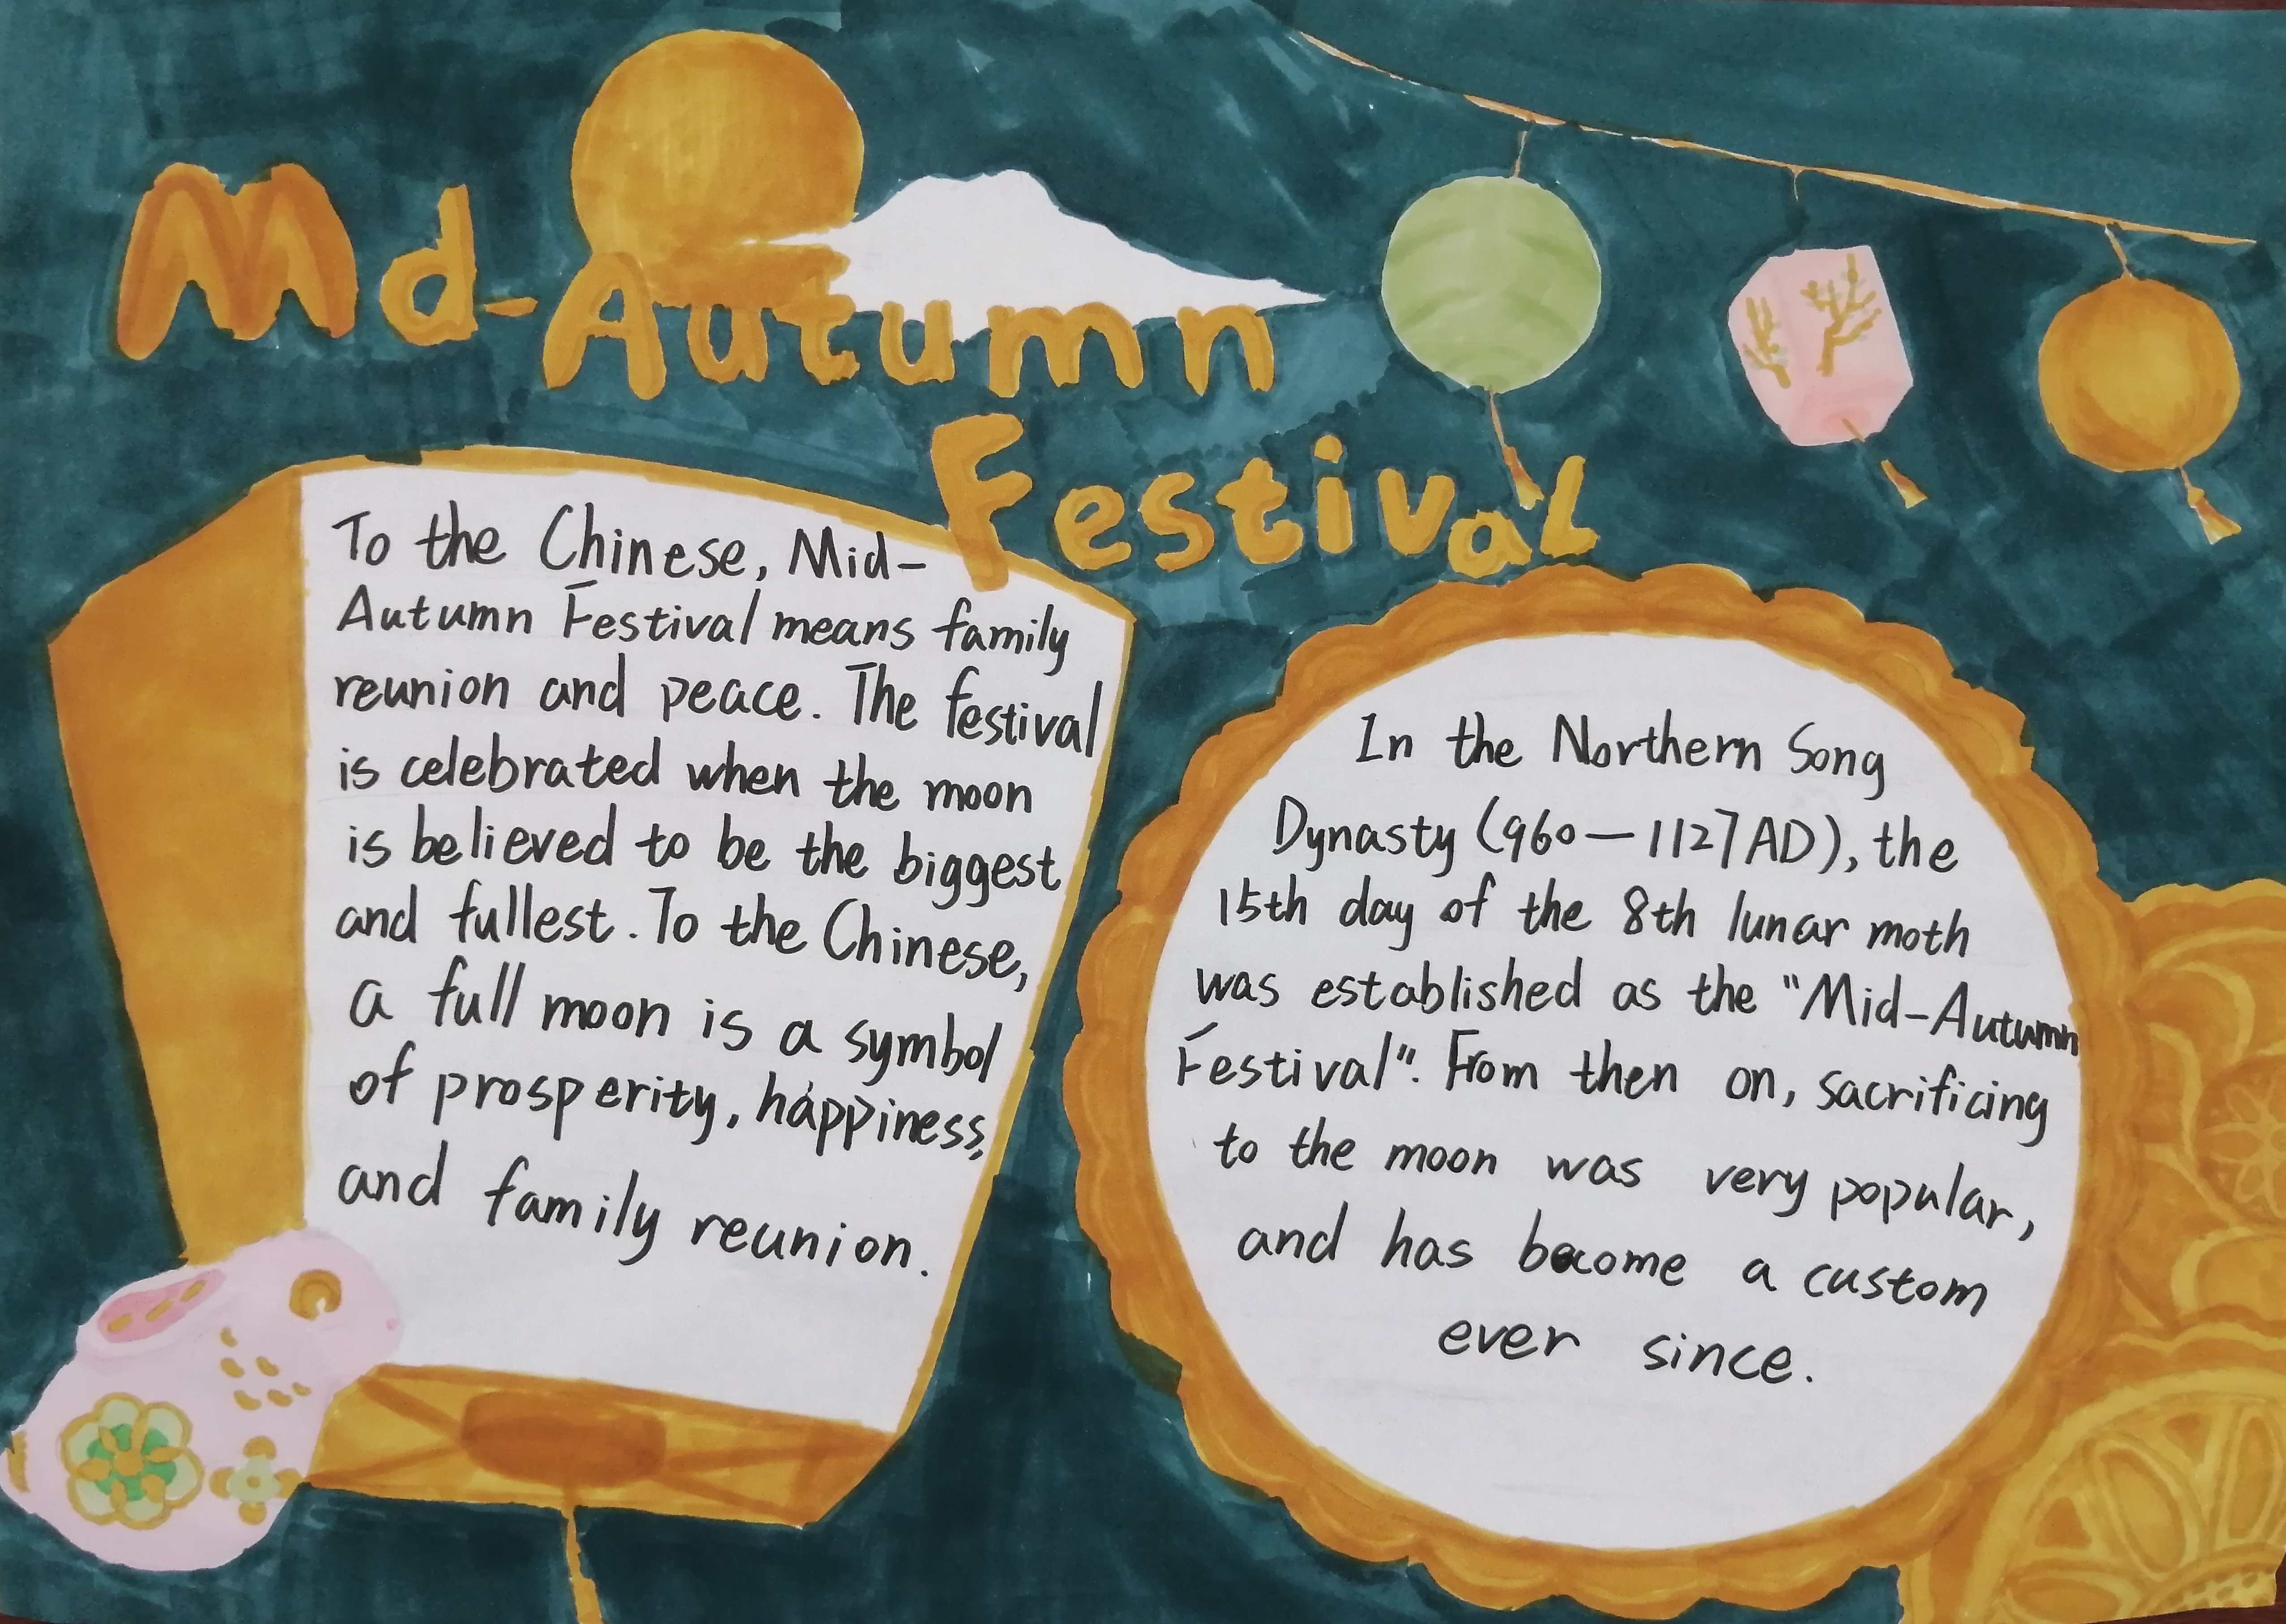 Md-Autumn
Festival
To the Chinese, Mid-
Autumn Festival means family
reunion and peace. The festival
is celebrated when the moon
is believed to be the biggest
and fullest. To the Chinese,
a full moon is a symbol
of prosperity, happiness,
and family reunion.
In the Northern Song
Dynasty (960—1127AD), the
15th day of the 8th lunar moth
was established as the "Mid-Autumn
Festival". From then on, sacrificing
to the moon was very popular,
and has become a custom
ever since.